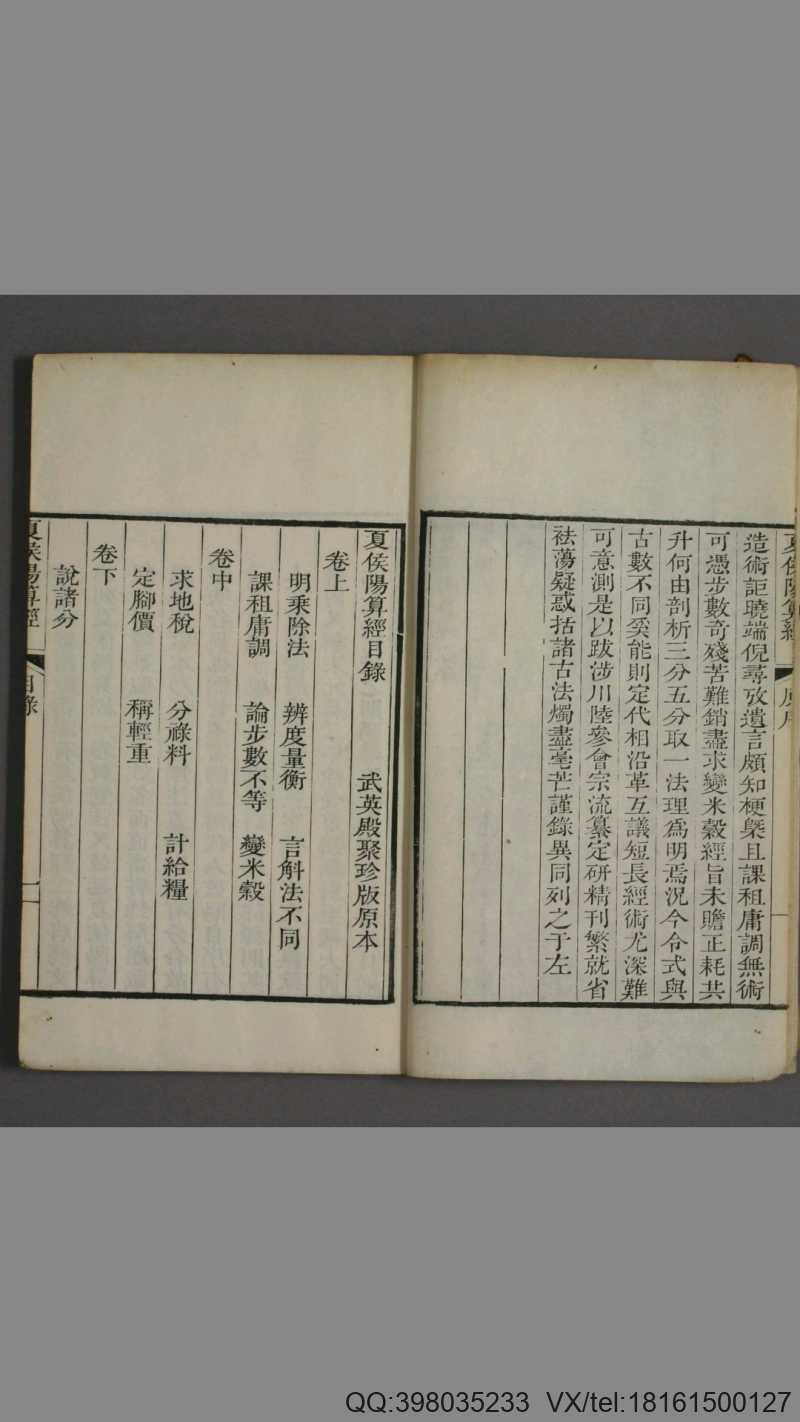 夏侯陽算經 原序
造術詎曉端倪尋攷遺言頗知梗槩且課租庸調無術
可憑步數奇殘苦難銷盡求變米穀經旨未贍正耗共
升何由剖析三分五分取一法理爲明焉況今令式與
古數不同奚能則定代相沿革互議短長經術尤深難
可意測是以跋涉川陸參會宗流纂定研精刊繁就省
袪蕩疑惑括諸古法燭盡毫芒謹錄異同列之于左
夏侯陽算經目錄 武英殿聚珍版原本
卷上
明乘除法 辨度量衡 言斛法不同
課租庸調 論步數不等 變米穀
卷中
求地稅 分祿料 計給糧
定腳價 稱輕重
卷下
說諸分
夏侯陽算經 目錄
QQ:398035233 VX/tel:18161500127